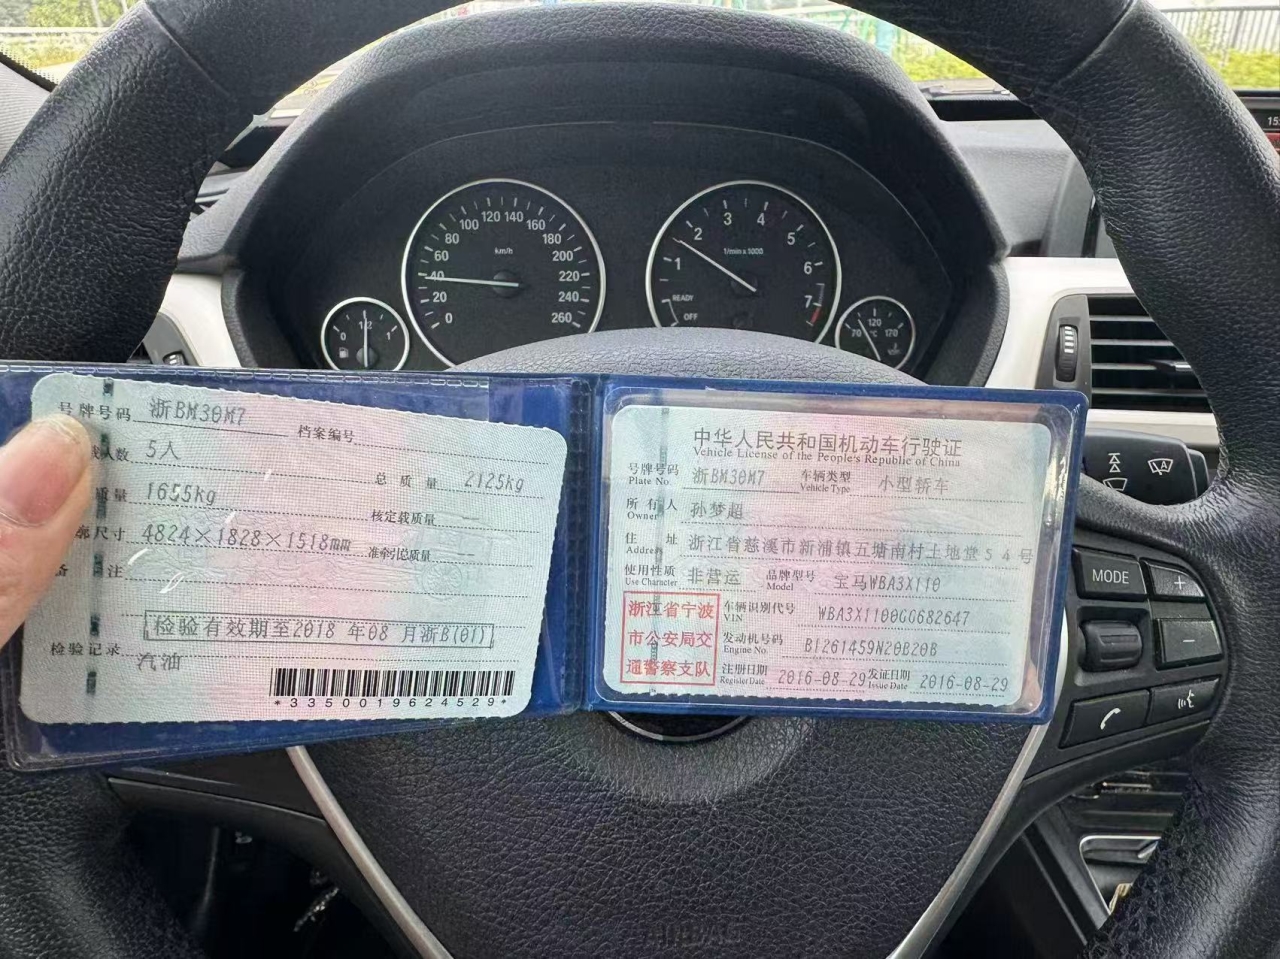 100 120 140 160
80 180
60 km/h 200
40 220
20 240
0 260
2 3 4 5
1 1/min x 1000 6
READY 7
OFF
0 1/2 1
70 120 170
°C
15:
MODE
+
-
号牌号码 浙BM30M7 档案编号
人数 5人 总质量 2125kg
质量 1655kg 核定载质量 —
尺寸 4824×1828×1518mm 准牵引总质量 —
注
检验有效期至2018 年08 月浙B(01)
检验记录
汽油
*3350019624529*
中华人民共和国机动车行驶证
Vehicle License of the People's Republic of China
号牌号码 浙BM30M7 车辆类型 小型轿车
Plate No. Vehicle Type
所有人 孙梦超
Owner
住址 浙江省慈溪市新浦镇五塘南村土地堂54号
Address
使用性质 非营运 品牌型号 宝马WBA3X110
Use Character Model
浙江省宁波
市公安局交
通警察支队
车辆识别代号 WBA3X1100GG682647
VIN
发动机号码 B1261459N20B20B
Engine No.
注册日期 2016-08-29 发证日期 2016-08-29
Register Date Issue Date